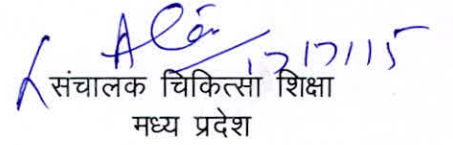 17/7/15
संचालक चिकित्सा शिक्षा
मध्य प्रदेश